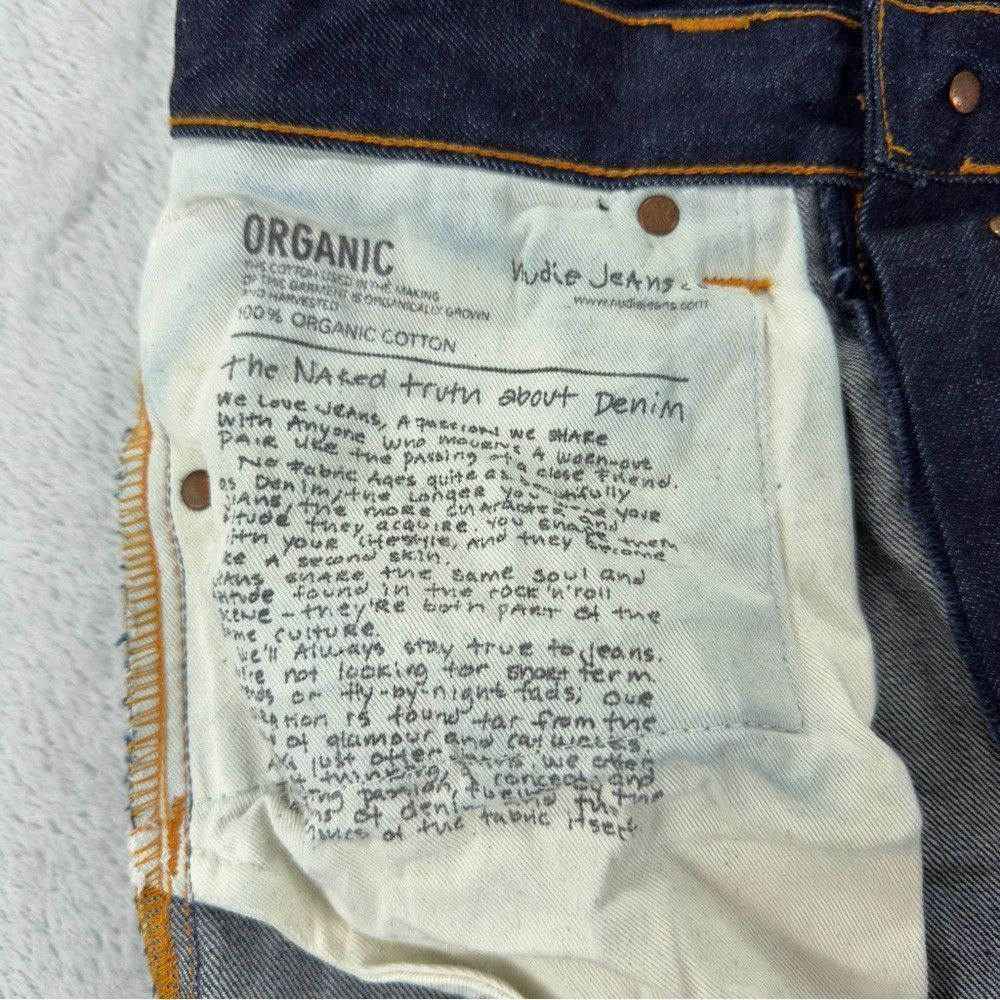 ORGANIC
THE COTTON USED IN THE MAKING
OF THIS GARMENT IS ORGANICALLY GROWN
AND HARVESTED
100% ORGANIC COTTON
Nudie Jeans co
www.nudiejeans.com
The Naked truth about Denim
We Love Jeans, A passion we share
with Anyone who mourns A worn-out
pair like the passing of a close friend.
No fabric Ages quite as
as Denim, the Longer you
the more character
they acquire. You
with your Lifestyle, And they become
a second skin.
share the same soul and
found in the rock'n'roll
they're both part of the
culture.
We'll Always stay true to jeans.
not looking for short term
or fly-by-night fads; our
is found far from the
of glamour and catwalks.
just offer
we often
concept and
passion, fuelled by the
of the fabric itself